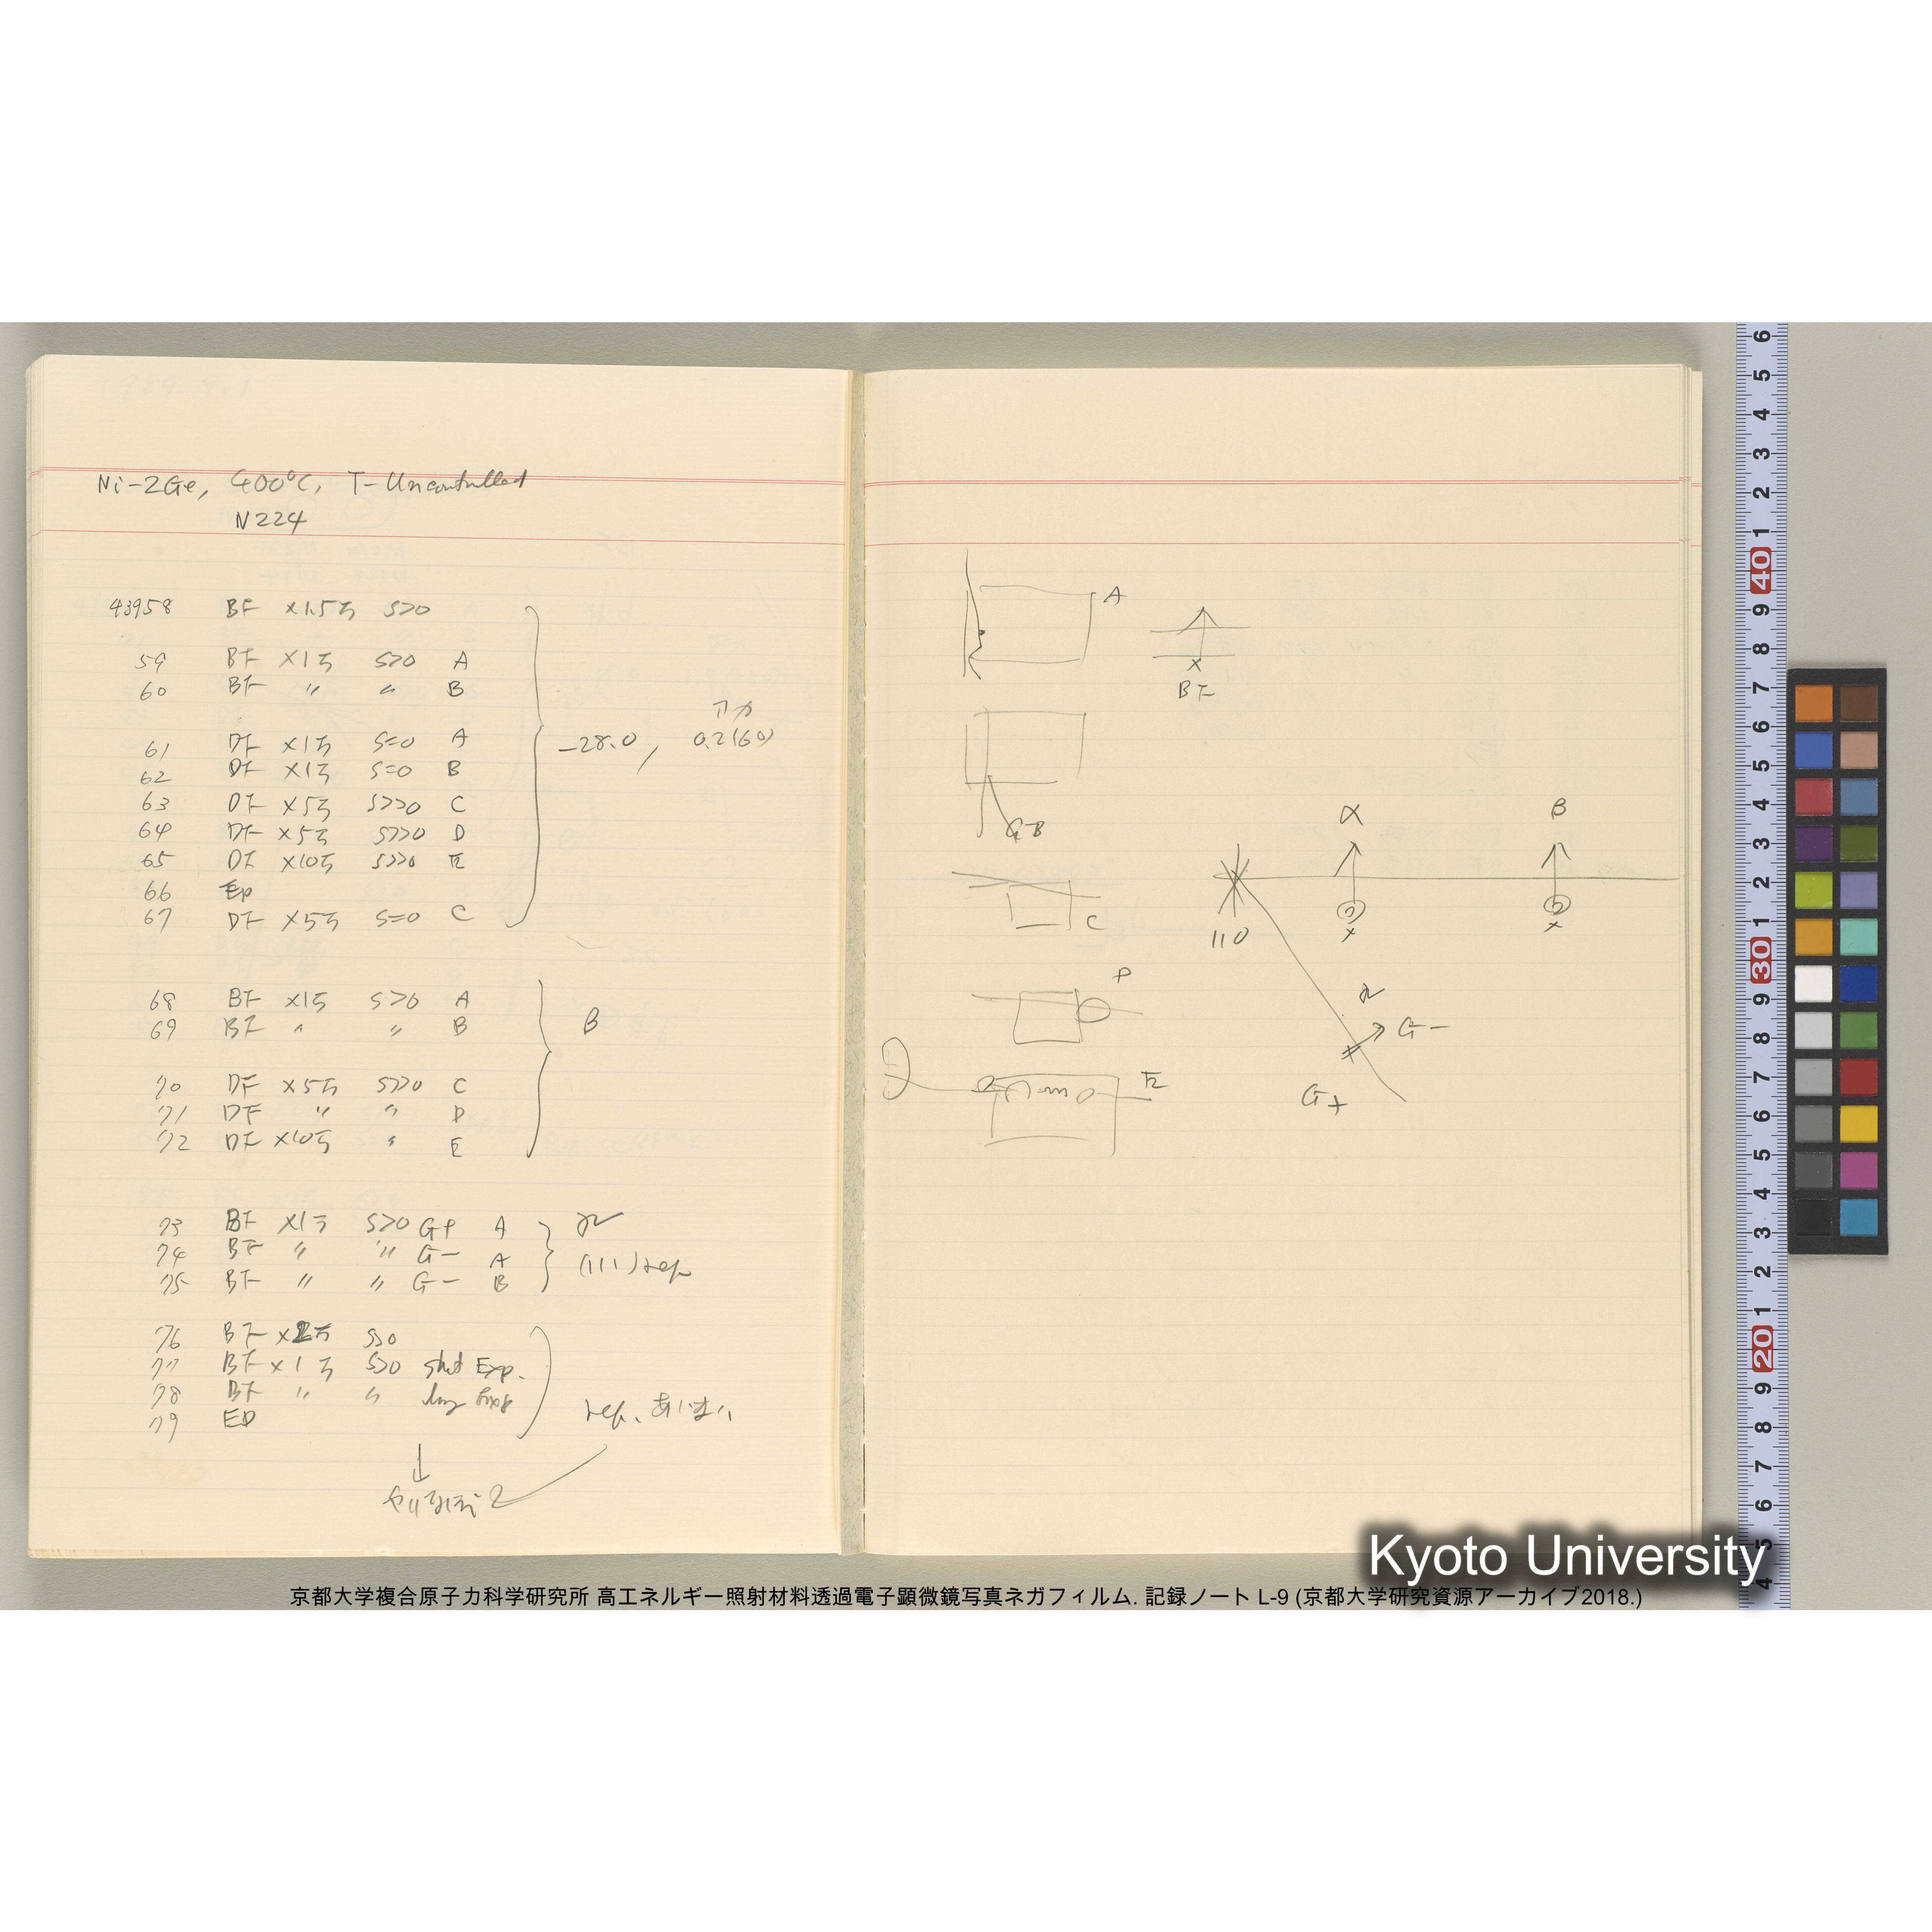 Ni-2Ge, 400°C, T-Uncontrolled
N224
43958 BF ×1.5万 S>0
59 BF ×1万 S>0 A
60 BF 〃 〃 B
61 DF ×1万 S=0 A
62 DF ×1万 S=0 B
63 DF ×5万 S>>0 C
64 DF ×5万 S>>0 D
65 DF ×10万 S>>0 E
66 ED
67 DF ×5万 S=0 C
-28.0, 0.2(60)
68 BF ×1万 S>0 A
69 BF 〃 〃 B
β
70 DF ×5万 S>>0 C
71 DF 〃 〃 D
72 DF ×10万 〃 E
73 BF ×1万 S>0 G+ A
74 BF 〃 〃 G- A
75 BF 〃 〃 G- B
γ
(111) rep
76 BF ×2万 S>0
77 BF ×1万 S>0 short Exp.
78 BF 〃 〃 long Exp
79 ED
rep. あいまい
A
×
BF
GB
C
D
E
α
β
110
×
×
γ
G-
G+
6 5 4 3 2 1 40 9 8 7 6 5 4 3 2 1 30 9 8 7 6 5 4 3 2 1 20 9 8 7 6 5 4
Kyoto University
京都大学複合原子力科学研究所 高エネルギー照射材料透過電子顕微鏡写真ネガフィルム. 記録ノート L-9 (京都大学研究資源アーカイブ2018.)